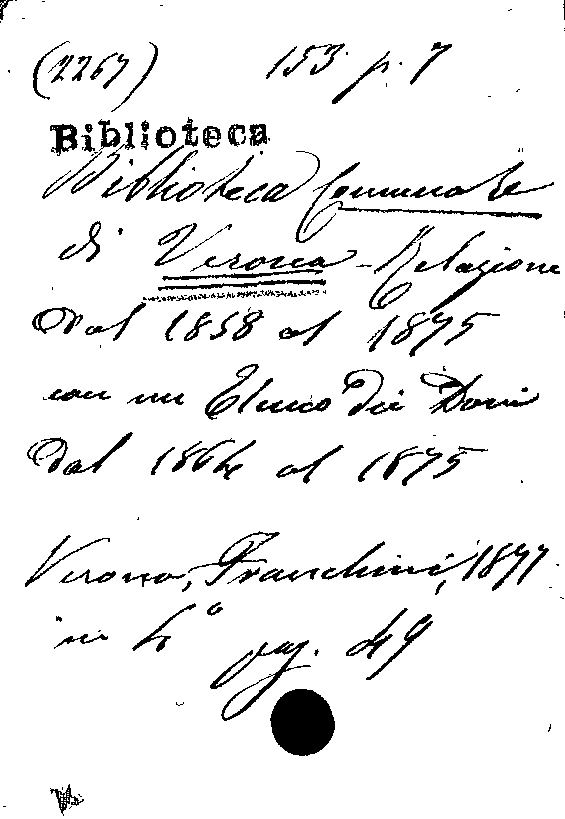 (2267) 153 p. 7
Biblioteca
Biblioteca Comunale
di Verona - Relazione
dal 1858 al 1875
con un Elenco dei Doni
dal 1864 al 1875
Verona, Franchini, 1877
in 4° pag. 49